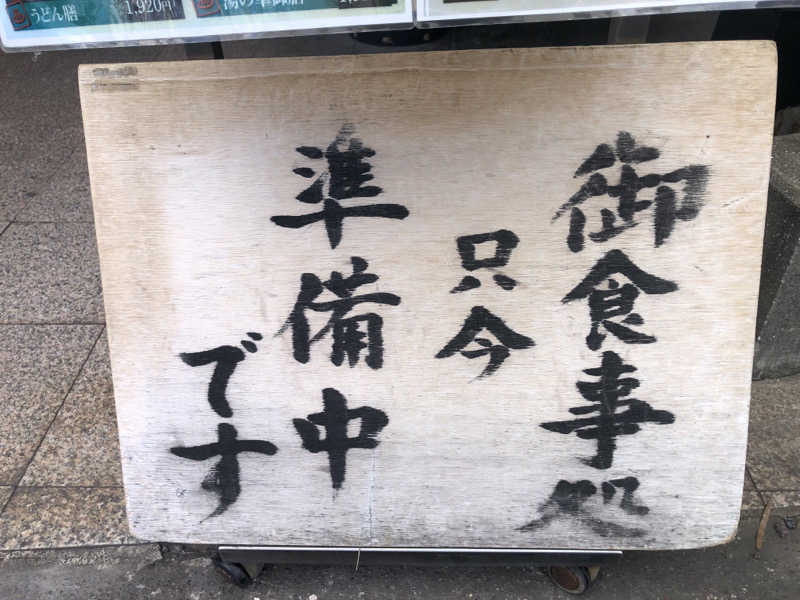 うどん膳 1,920円
御食事処
只今
準備中
です